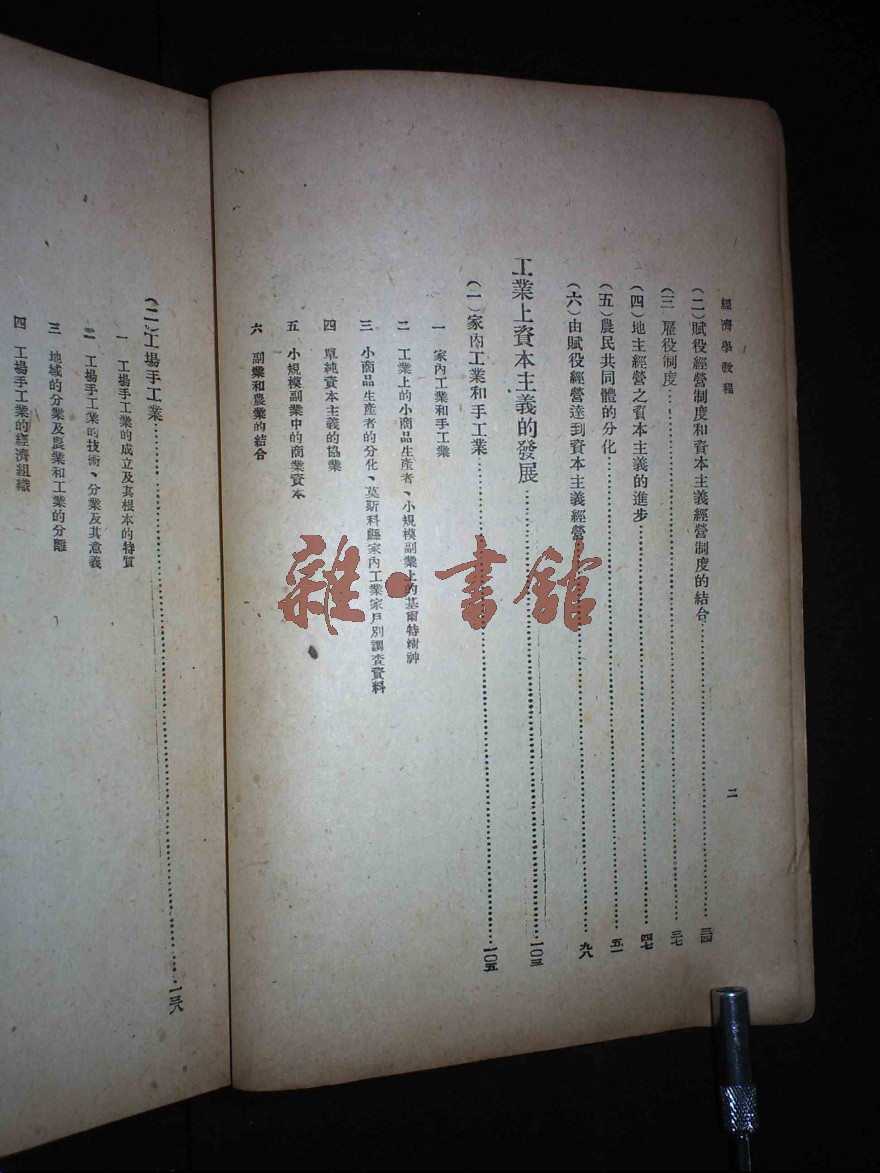 經濟學教程
二
(二)賦役經營制度和資本主義經營制度的結合……三四
(三)雇役制度……三七
(四)地主經營之資本主義的進步……四七
(五)農民共同體的分化……五一
(六)由賦役經營達到資本主義經營……九八
工業上資本主義的發展……一〇三
(一)家內工業和手工業……一〇五
一 家內工業和手工業
二 工業上的小商品生產者、小規模副業上的基爾特精神
三 小商品生產者的分化、莫斯科縣家內工業家戶別調查資料
四 單純資本主義的協業
五 小規模副業中的商業資本
六 副業和農業的結合
(二)工場手工業……一三八
一 工場手工業的成立及其根本的特質
二 工場手工業的技術、分業及其意義
三 地域的分業及農業和工業的分離
四 工場手工業的經濟組織
雜·書館